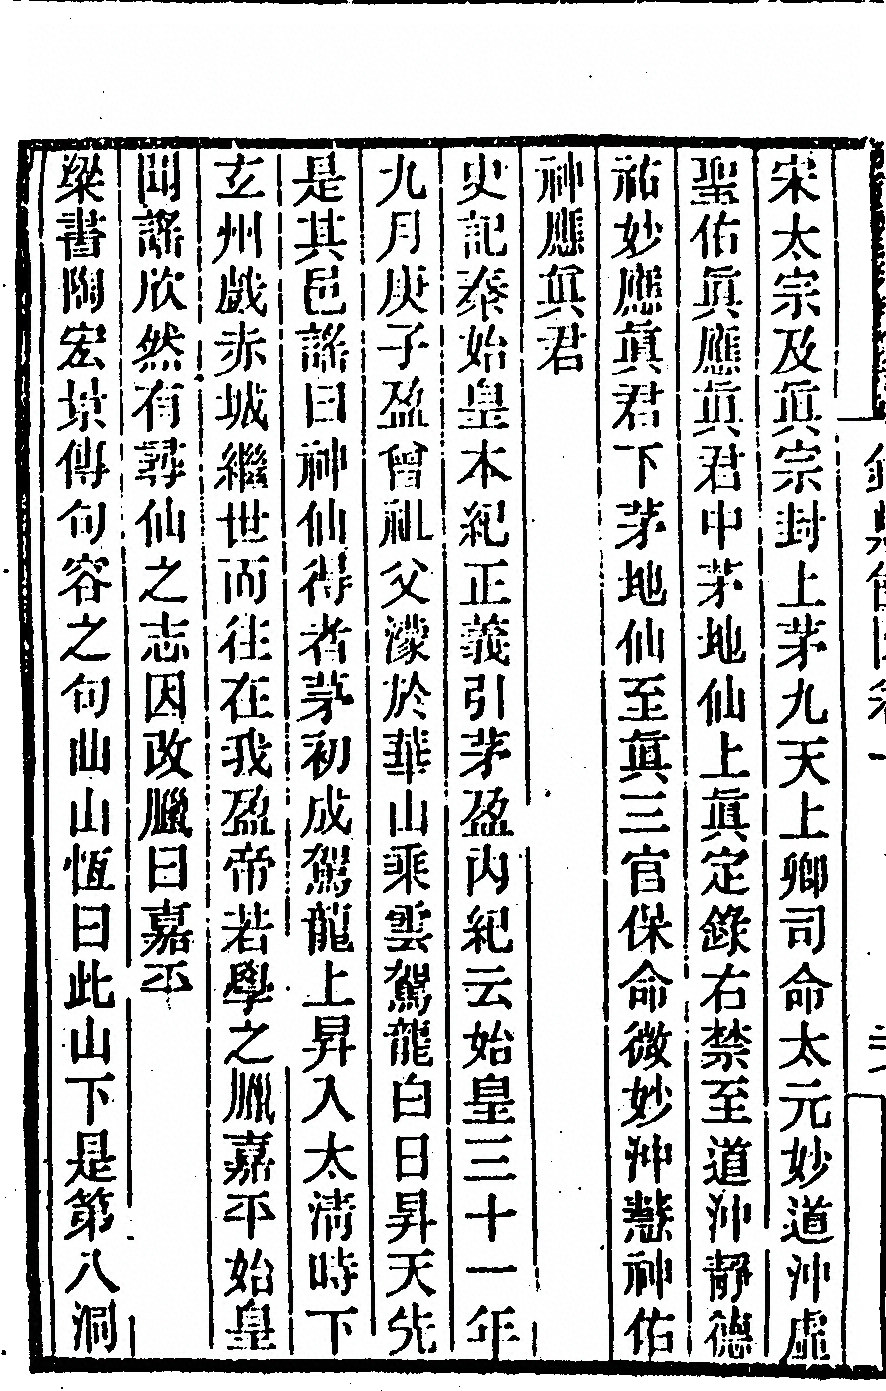 宋太宗及眞宗封上茅九天上卿司命太元妙道沖虛
聖佑眞應眞君中茅地仙上眞定錄右禁至道沖靜德
祐妙應眞君下茅地仙至眞三官保命微妙沖慧神佑
神應眞君
史記秦始皇本紀正義引茅盈內紀云始皇三十一年
九月庚子盈曾祖父濛於華山乘雲駕龍白日昇天先
是其邑謠曰神仙得者茅初成駕龍上昇入太清時下
玄州戲赤城繼世而往在我盈帝若學之臘嘉平始皇
聞謠欣然有尋仙之志因改臘曰嘉平
梁書陶宏景傳句容之句曲山恆曰此山下是第八洞